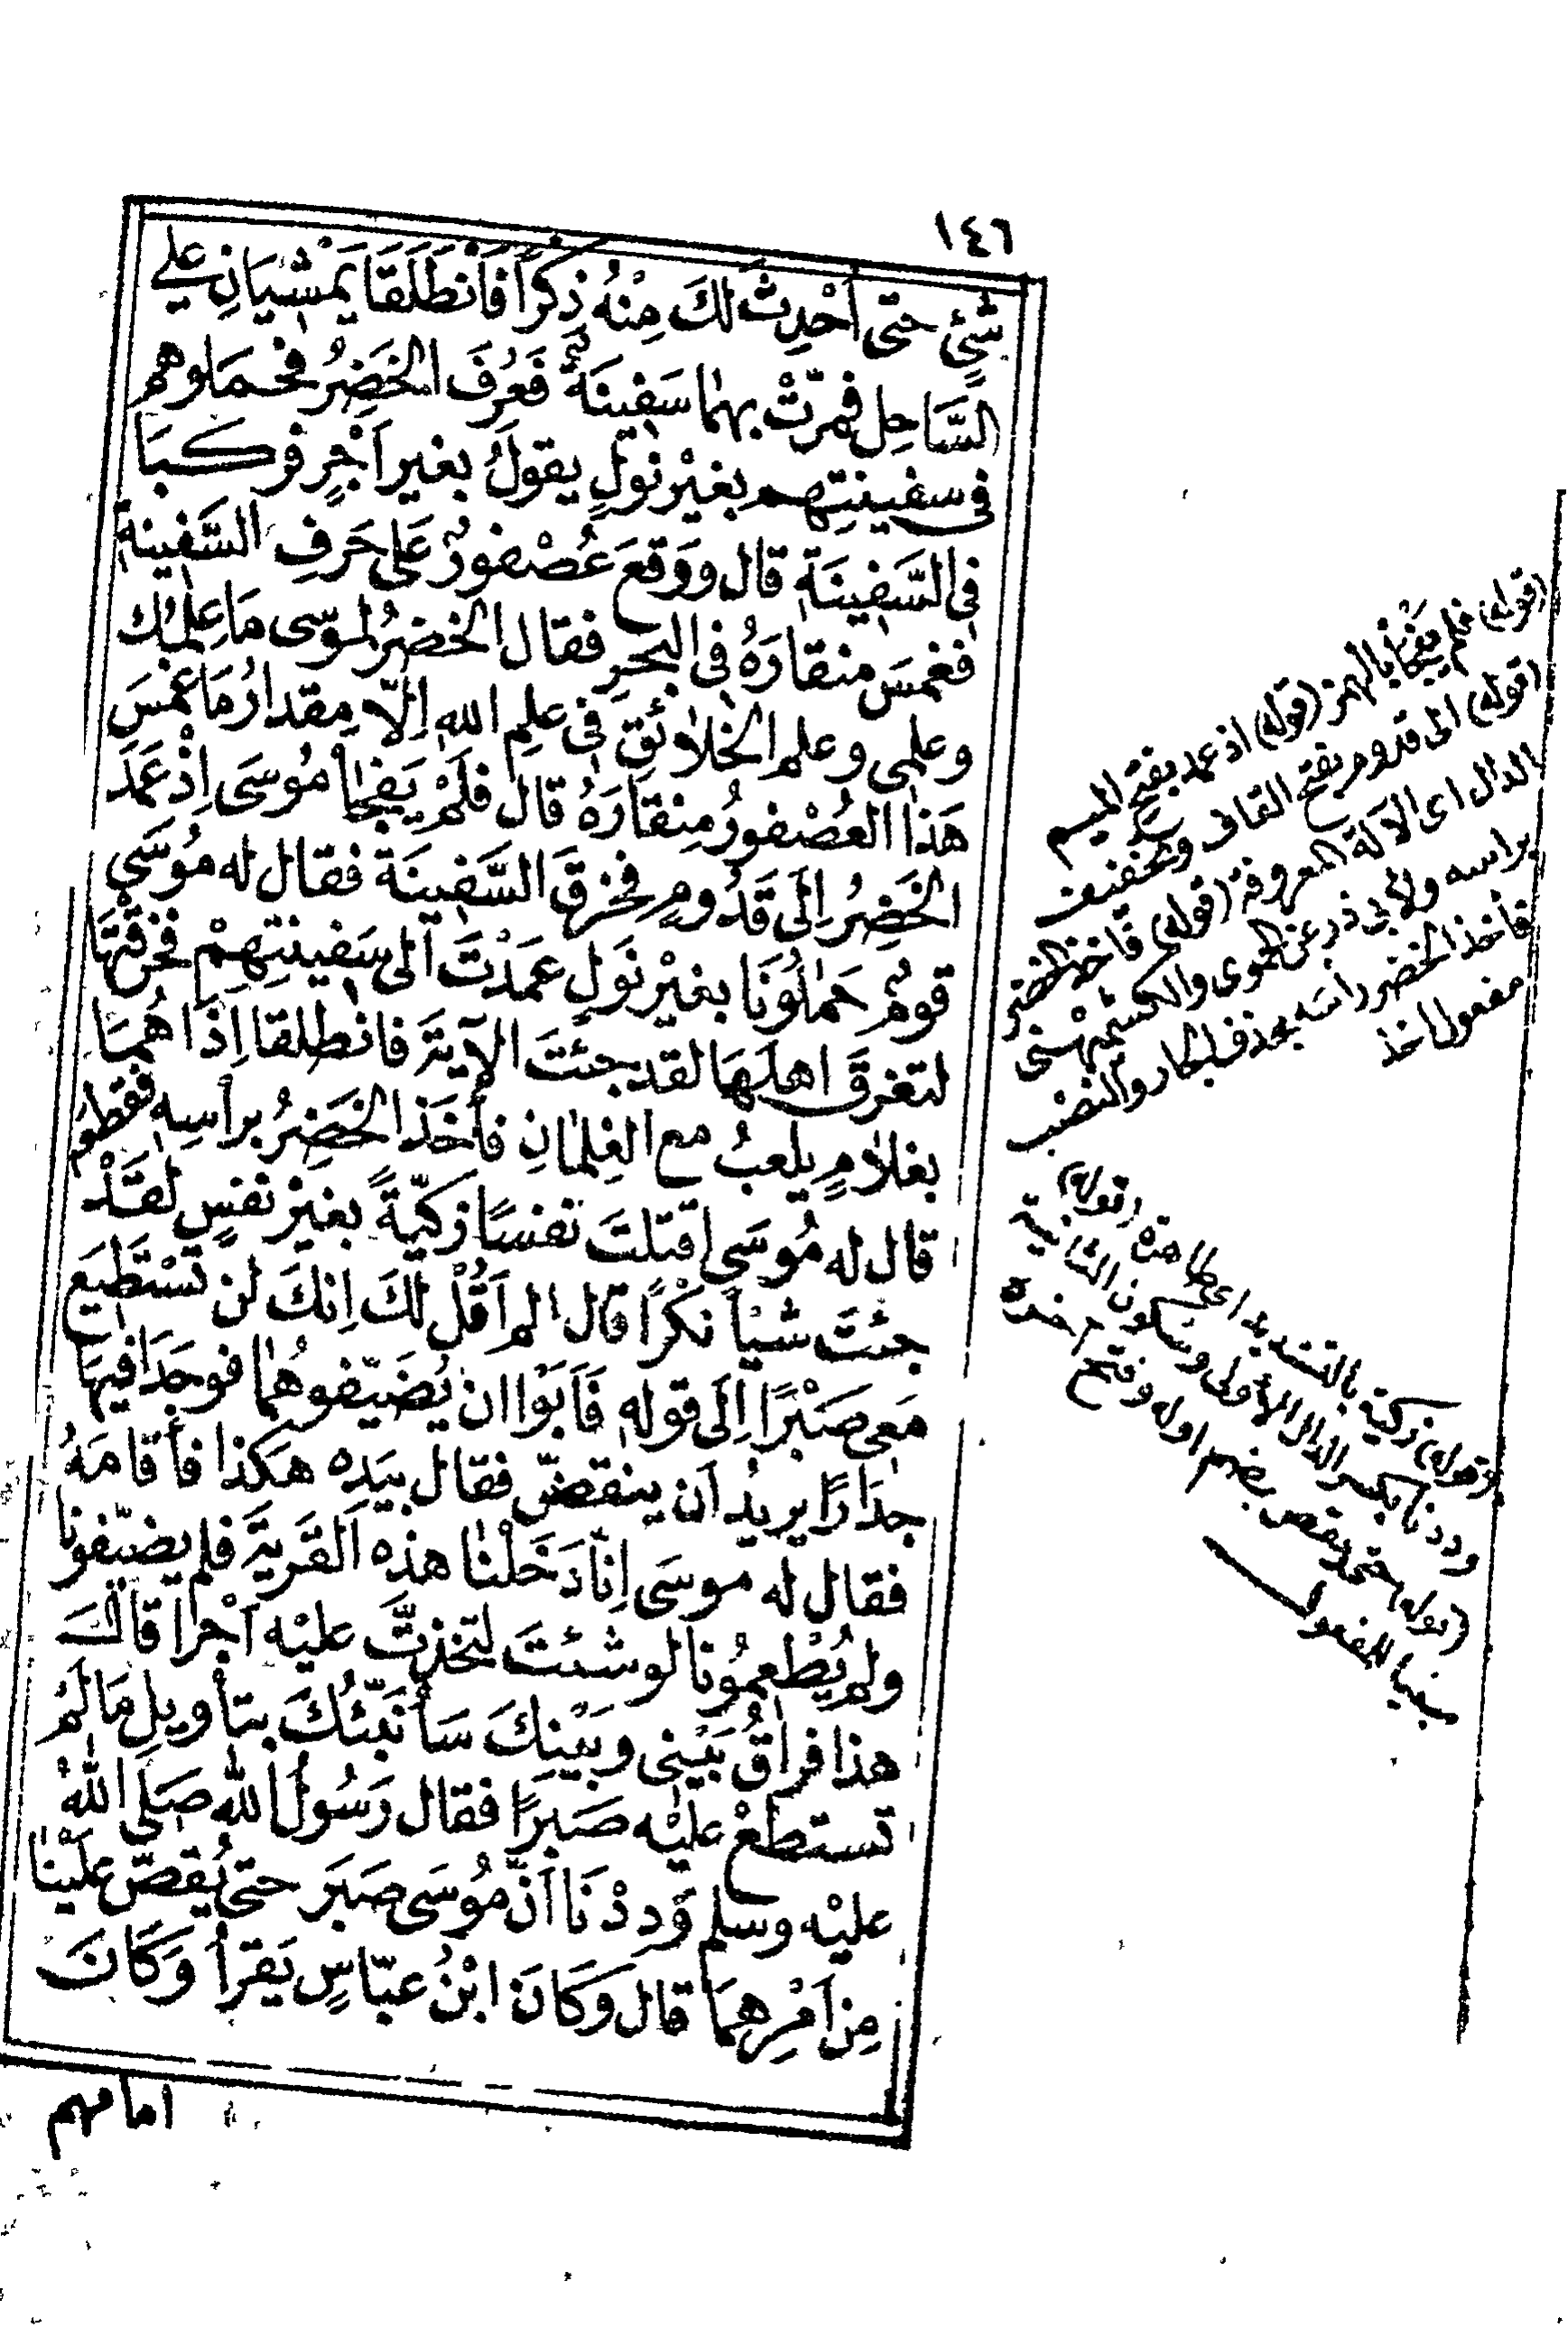 ١٤٦
شَئٍ حتى اُحْدِثَ لكَ مِنْهُ ذِكْراً فَانْطَلَقَا يَمْشِيَانِ على
السَّاحِلِ فمرّتْ بهما سَفِينَةٌ فَعُرِفَ الخَضِرُ فحملوهم
فى سفينتِهم بغيْر نَوْلٍ يقولُ بغير اَجْرٍ فركبَا
فى السَّفِينَةِ قال ووَقعَ عُصْفورٌ عَلى حَرفِ السَّفِينة
فغمسَ منقارَهُ فى البحرِ فقال الخضرُ لموسى مَا عِلمُك
وعلمى وعلم الخلائقِ فى علمِ اللهِ اِلّا مِقدارُ مَا غمَسَ
هَذا العُصْفورُ مِنقارَهُ قال فلَمْ يَفجأ مُوسَى اِذْ عَمَدَ
الخَضِرُ اِلَى قَدُومٍ فخرقَ السَّفِينَة فقال له مُوسَى
قومٌ حَملُونَا بغيْر نَولٍ عمَدْتَ الى سَفينتِهِمْ فخرقْتَهَا
لتغرقَ اهلَهَا لقد جئتَ الآيَة فانطلقا اِذَا هُمَا
بغلامٍ يلعبُ مع الغِلمَانِ فأَخَذَ الخَضِرُ برأسِه فقطعه
قال له مُوسَى اقتلتَ نفسًا زكيّةً بغيْر نفسٍ لقَدْ
جئتَ شيْأً نكْرًا قال الم اَقُلْ لكَ اِنكَ لن تسْتَطِيعَ
مَعِى صَبْرًا اِلَى قوله فَاَبَوْا ان يُضَيّفوهُما فوجَدَا فِيهَا
جدَارًا يريدُ اَن ينقضّ فقال بيَدِه هكذا فأقامَهُ
فقال له موسَى اِنّا دَخَلْنا هذه القَريَةَ فلم يضيّفونا
ولم يُطْعِمُونا لو شئتَ لتخذتَّ عليْه اَجْرا قال
هذا فراقُ بَيْنى وبَيْنِكَ سَأُنَبِّئُكَ بتأويلِ مَا لَمْ
تستطعْ عليْه صَبرًا فقال رَسُولُ الله صَلى اللهُ
عليْه وسلم وَدِدْنَا اَنَّ مُوسَى صَبَرَ حتى يُقصّ عليْنا
مِن اَمْرِهمَا قال وكَانَ ابْنُ عبّاسٍ يَقرأُ وَكَانَ
امامهم
(قوله) فلم يفجأ بالهمز (قوله) اذ عمد بفتح الميم
(قوله) الى قدوم بفتح القاف وتخفيف
الدال اى الآلة المعروفة (قوله) فاخذ الخضر
براسه ولابى ذر عن الحموى والكشميهنى
فاخذ الخضر راسه بحذف الجار والنصب
مفعول اخذ
(قوله) زكية بالتشديد اى طاهرة (قوله)
وددنا بكسر الدال الأولى وسكون الثانية
(قوله) حتى يقص بضم اوله وفتح اخره
مبنيا للمفعول